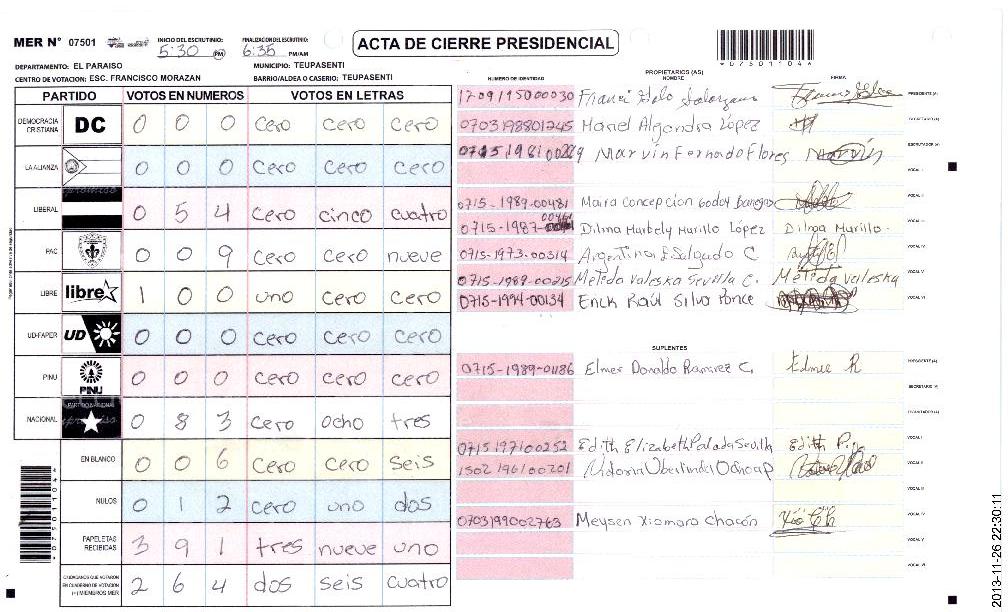 MER N° 07501 INICIO DEL ESCRUTINIO: 5:30 PM FINALIZACION DEL ESCRUTINIO: 6:35 PM/AM ACTA DE CIERRE PRESIDENCIAL *07501104*
DEPARTAMENTO: EL PARAISO MUNICIPIO: TEUPASENTI
CENTRO DE VOTACION: ESC. FRANCISCO MORAZAN BARRIO/ALDEA O CASERIO: TEUPASENTI
PARTIDO VOTOS EN NUMEROS VOTOS EN LETRAS
DEMOCRACIA CRISTIANA DC 0 0 0 Cero Cero Cero
LA ALIANZA 0 0 0 Cero Cero Cero
LIBERAL 0 5 4 Cero cinco cuatro
PAC 0 0 9 Cero Cero nueve
LIBRE libre 1 0 0 uno Cero Cero
UD-FAPER UD 0 0 0 Cero Cero Cero
PINU PINU 0 0 0 Cero Cero Cero
NACIONAL 0 8 3 Cero ocho tres
EN BLANCO 0 0 6 Cero Cero Seis
NULOS 0 1 2 Cero uno dos
PAPELETAS RECIBIDAS 3 9 1 tres nueve uno
CIUDADANOS QUE VOTARON EN CUADERNO DE VOTACION (+) MIEMBROS MER 2 6 4 dos seis cuatro
*07501104*
NUMERO DE IDENTIDAD PROPIETARIOS (AS) NOMBRE FIRMA
1709195000030 PRESIDENTE (A)
0703198801245 López SECRETARIO (A)
Marvin Fernando Flores Marvin ESCRUTADOR (A)
VOCAL I
0715-1989-00481 Maira Concepcion Godoy VOCAL II
0715-1987- Dilma Marbely Murillo López Dilma Murillo. VOCAL III
0715-1973-00314 Argentina Salgado C VOCAL IV
0715-1989-00215 Valeska Sevilla C. Valeska VOCAL V
0715-1994-00134 Erick Raúl Silva Ponce VOCAL VI
SUPLENTES
0715-1989-01186 Elmer Donaldo Ramirez C. PRESIDENTE (A)
SECRETARIO (A)
ESCRUTADOR (A)
0715197100252 Edith Elizabeth Edith VOCAL I
1502196100201 VOCAL II
VOCAL III
0703199002763 Meysen Xiomara Chacón VOCAL IV
VOCAL V
VOCAL VI
2013-11-26 22:30:11